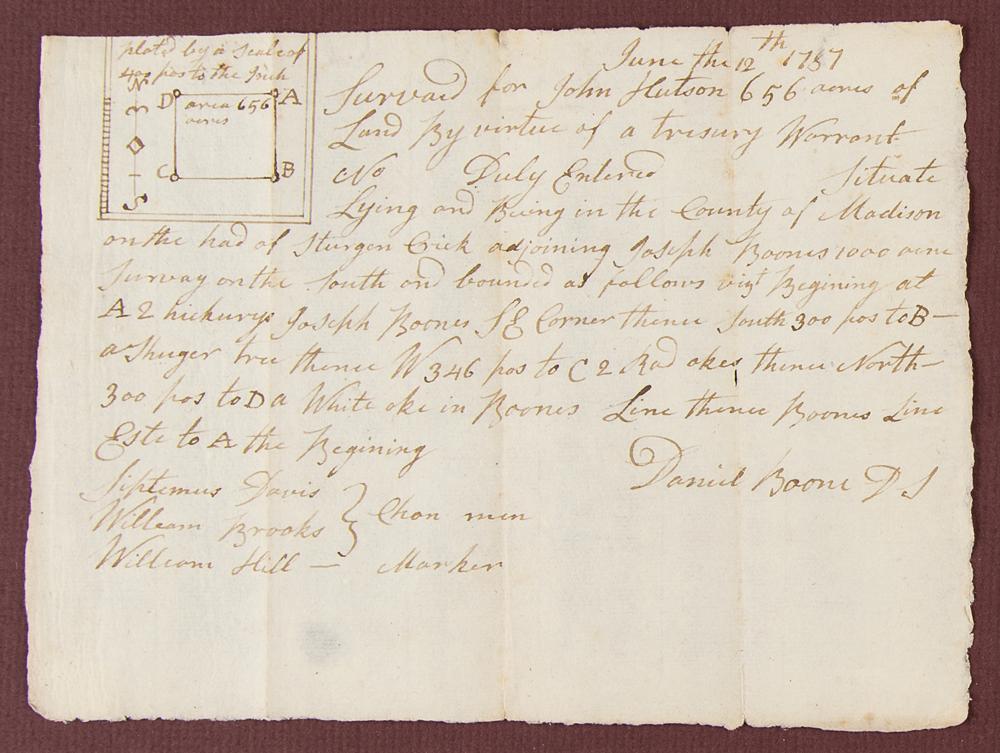 plated by a Scale of
400 pos to the Inch
N
D A
area 656
acres
C B
S
June the 12th 1787
Survaid for John Hutson 656 acres of
Land By virtue of a tresury Warrant
No Duly Entered Situate
Lying and Being in the County of Madison
on the had of Sturgen Crick adjoining Joseph Boones 1000 acre
Survay on the South and bounded as follows vizt Begining at
A 2 hickurys Joseph Boones SE Corner thence South 300 pos to B —
a Shuger tree thence W 346 pos to C 2 Rad okes thence North —
300 pos to D a White oke in Boones Line thence Boones Line
Este to A the Begining
Daniel Boone D S
Siptemus Davis
William Brooks } Chan men
William Hill — Marker